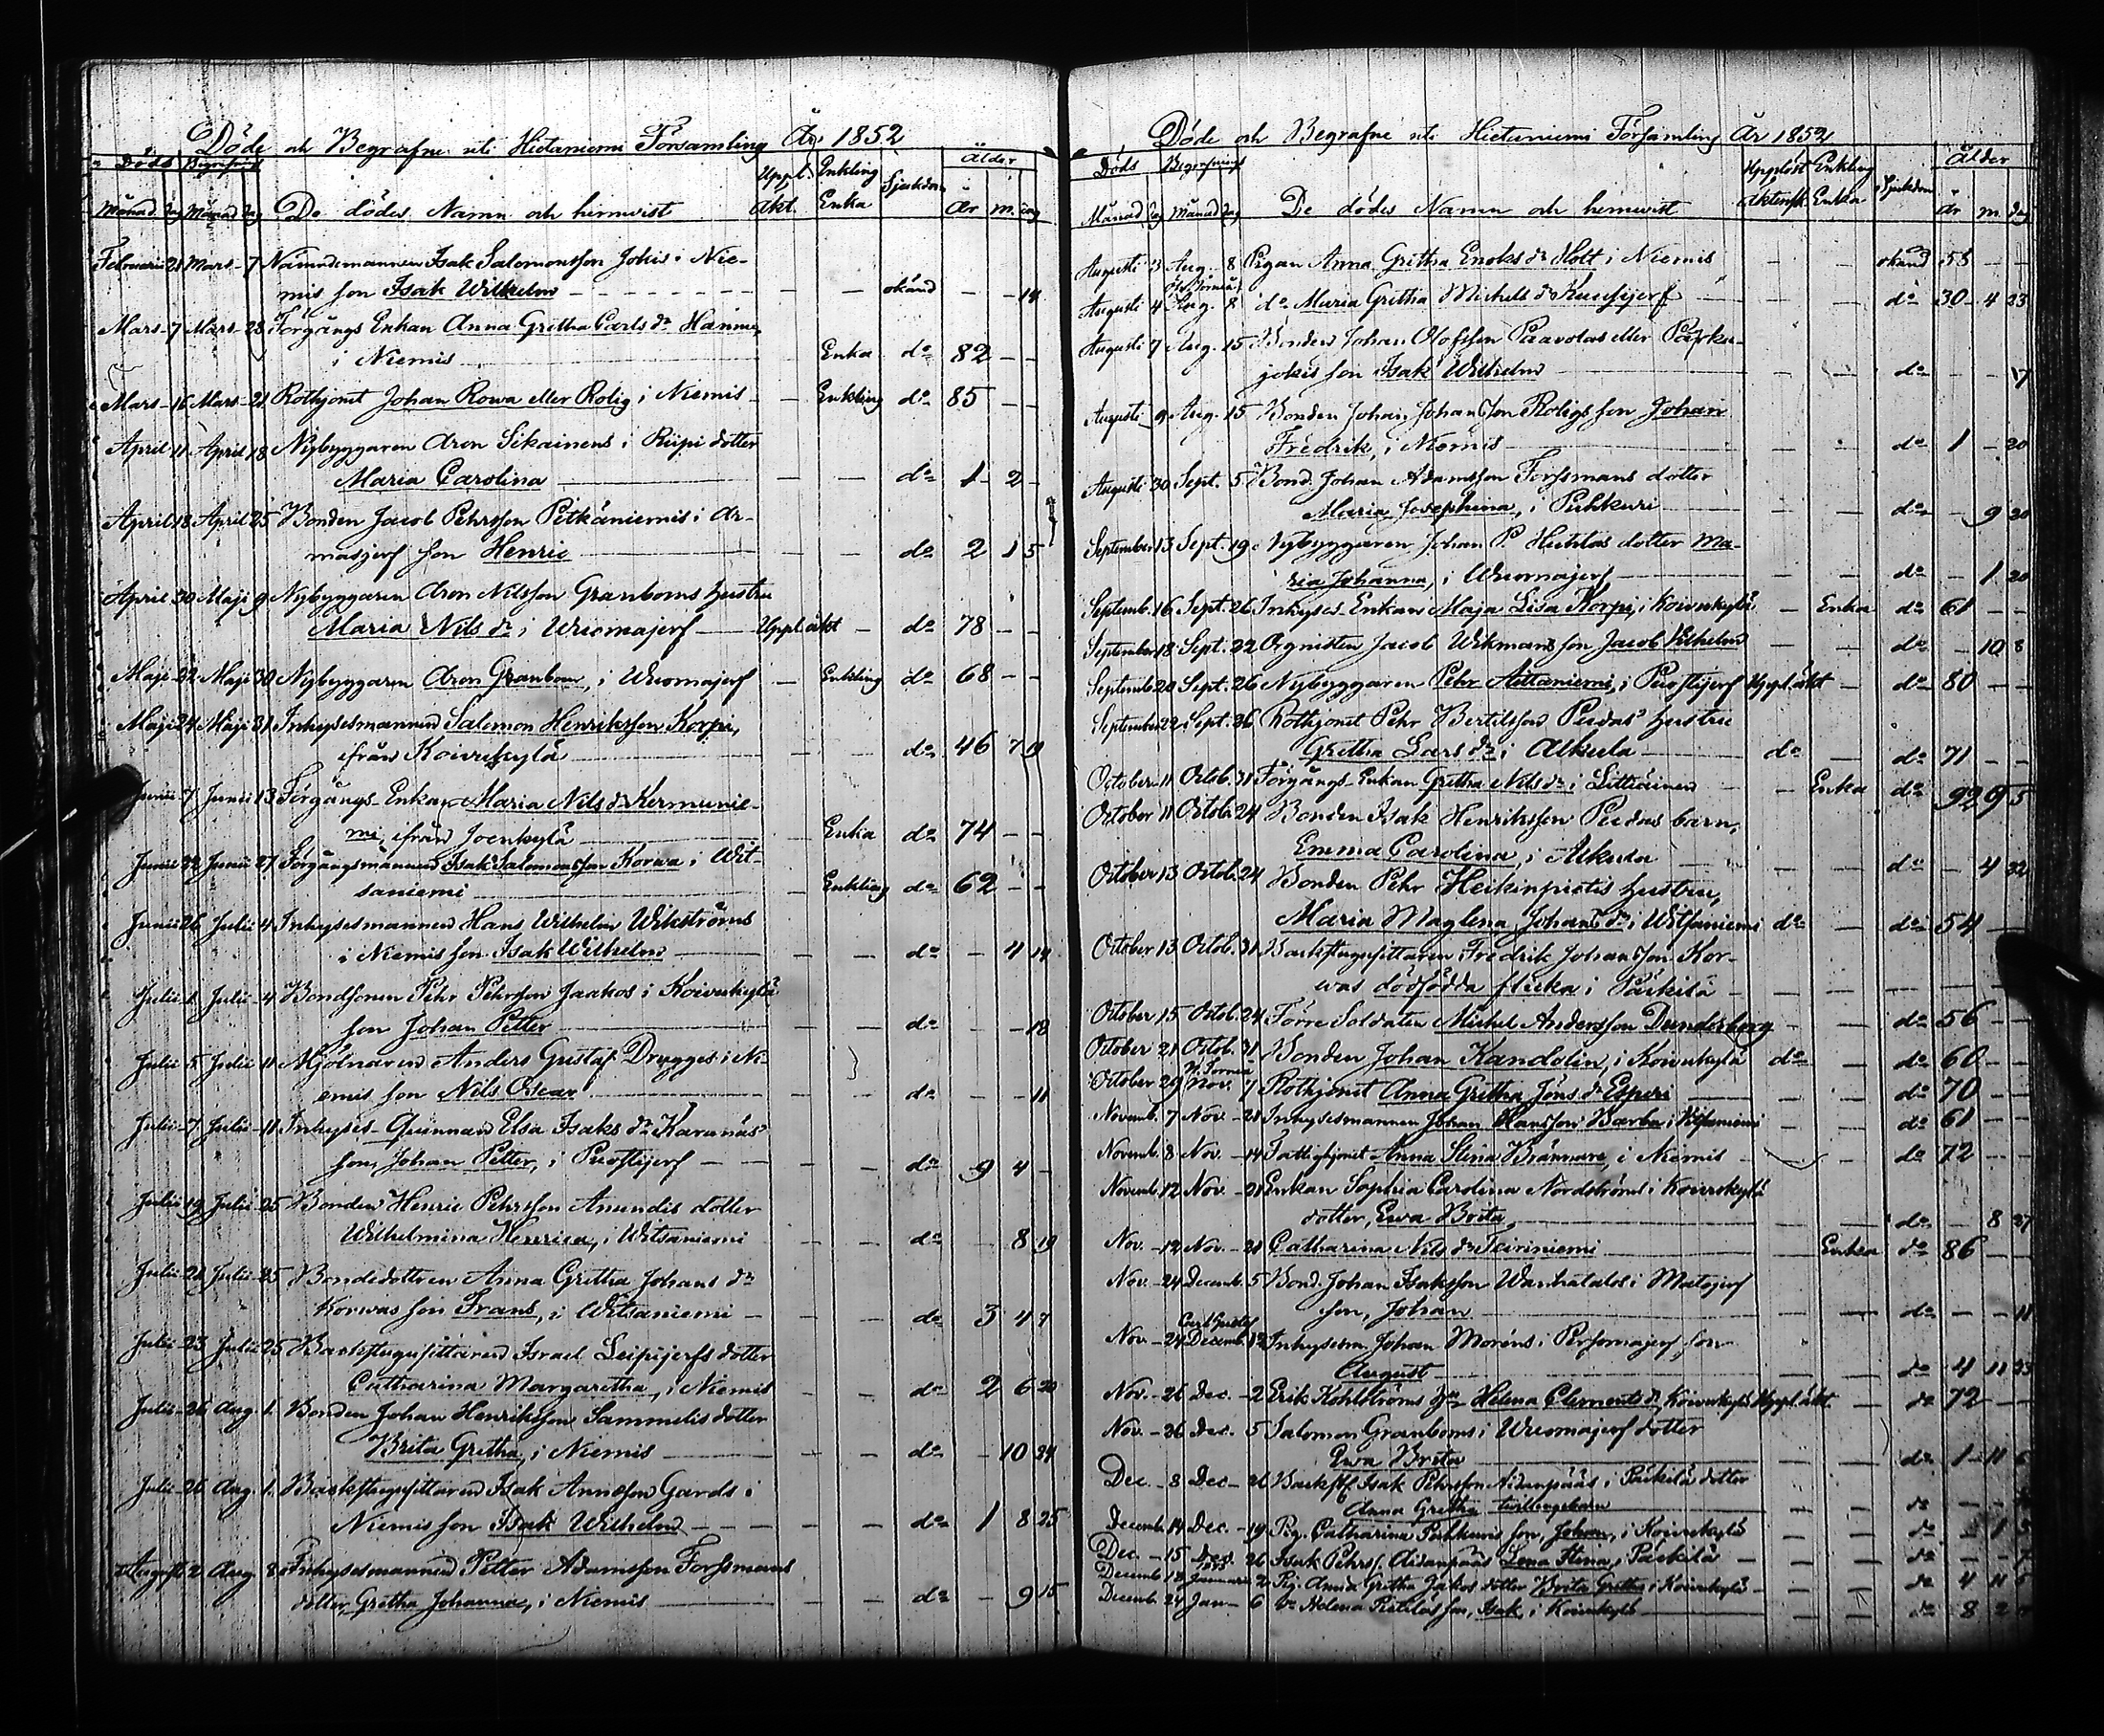 Döde och Begrafne uti Hietaniemi Församling År 1852
Döds Begrafning Uppl. Enkling Sjukdom Ålder
Månad Dag Månad Dag De dödes Namn och hemvist Äkt. Enka År m. dag
Februarii 28 Mars 7 Nämndemannen Isak Salomonsson Jokis i Nie-
mis son Isak Wilhelm okänd 14
Mars 7 Mars 28 Förgångs Enkan Anna Gretha Carls dr
i Niemis Enka do 82
Mars 16 Mars 21 Rothjonet Johan Rowa eller Rolig i Niemis Enkling do 85
April 11 April 18 Nybyggaren Aron Sikainens i Riipi dotter
Maria Carolina do 1 2
April 18 April 25 Bonden Jacob Pehrsson Pitkäniemis i Ar-
masjerf son Henric do 2 1 5
April 30 Maji 9 Nybyggaren Aron Nilsson Granboms hustru
Maria Nils dr i Wuomajerf Uppl. äkt do 78
Maji 22 Maji 30 Nybyggaren Aron Granbom, i Wuomajerf Enkling do 68
Maji 24 Maji 31 Inhysesmannen Salomon Henriksson Korpi,
ifrån Koivukylä do 46 7
Junii 7 Junii 13 Förgångs Enkan Maria Nils dr Kermunie-
mi ifrån Joenkylä Enka do 74
Junii 22 Junii 27 Förgångsmannen Isak Salomonsson Korwa i Wit-
saniemi Enkling do 62
Junii 26 Julii 4 Inhysesmannen Hans Wilhelm Wikströms
i Niemis son Isak Wilhelm do 4 14
Julii 1 Julii 4 Bondsonen Pehr Pehrsson Jaakos i Koivukylä
son Johan Petter do 12
Julii 5 Julii 11 Mjölnaren Anders Gustaf Drygges i Ni-
emis son Nils Oscar do 11
Julii 7 Julii 11 Inhyses Qvinnan Elsa Isaks dr
son, Johan Petter, i Puostijerf do 9 4
Julii 19 Julii 25 Bonden Henric Pehrsson Anundis dotter
Wilhelmina Henrica, i Witsaniemi do 8 19
Julii 21 Julii 25 Bondedottren Anna Gretha Johans dr
Korwas son Frans, i Witsaniemi do 3 4 7
Julii 23 Julii 25 Backstugusittaren Israel Leipijerfs dotter
Catharina Margaretha, i Niemis do 2 6 20
Julii 26 Aug. 1. Bonden Johan Henriksson Sammelis dotter
Brita Gretha, i Niemis do 10 24
Julii 26 Aug. 1. Backstugusittaren Isak Annsson Gards i
Niemis son Isak Wilhelm do 1 8 25
Augusti 2 Aug. 8 Inhysesmannen Petter Adamsson Forssmans
dotter, Gretha Johanna, i Niemis do 9 15
Döde och Begrafne uti Hietaniemi Församling År 1852
Döds Begrafnings Upplöst Enkling Sjukdom Ålder
Månad dag Månad dag De dödes Namn och hemvist Äktensk. Enka år m. dag
Augusti 3 Aug. 8 Pigan Anna Gretha Enoks dr Hott i Niemis okänd 58
Öf. Torneå
Augusti 4 Aug. 8 do Maria Gretha Michels dr do 30 4 23
Augusti 7 Aug. 15 Bonden Johan Olofsson Paavolas eller
jokis son Isak Wilhelm do 17
Augusti 9 Aug. 15 Bonden Johan Johansson Roligs son Johan
Fredrik, i Niemis do 1 20
Augusti 30 Sept. 5 Bond. Johan Adamsson Forssmans dotter
Maria Josephina, i Puhkuri do 9 20
September 13 Sept. 19 Nybyggaren Johan P. Hietalas dotter Ma-
ria Johanna, i Wuomajerf do 1 20
Septemb. 16 Sept. 26 Inhyses Enkan Maja Lisa Korpi, i Koivukylä Enka do 61
September 18 Sept. 22 Orgnisten Jacob Wikmans son Jacob Wilhelm do 10 8
Septemb. 20 Sept. 26 Nybyggaren Pehr Aittaniemi, i Puostijerf Uppl. äkt do 80
September 22 Sept. 26 Rothjonet Pehr Bertilsson Pudas hustru
Gretha Lars dr i Alkula do do 71
October 11 Octob. 31 Förgångs Enkan Gretha Nils dr i Littiäinen Enka do 92 9 5
October 11 Octob. 24 Bonden Isak Henriksson Pudas barn,
Emma Carolina, i Alkula do 4 22
October 13 Octob. 24 Bonden Pehr Heikinpietis hustru,
Maria Maglena Johans dr, i Witsaniemi do do 54
October 13 Octob. 31 Backstugusittaren Fredrik Johansson Kor-
was dödfödda flicka i Päckilä
October 15 Octob. 24 Förre Soldaten Michel Andersson Dunderberg do 56
October 21 Octob. 31 Bonden Johan Kandolin, i Koivukylä do do 60
N. Torneå
October 29 Nov. 7 Rothjonet Anna Gretha Jöns dr Esperi do 70
Novemb. 7 Nov. 21 Inhysesmannen Johan Hansson Barba i Witsaniemi do 61
Novemb. 8 Nov. 14 Fattighjonet Anna Stina Brännare, i Niemis do 72
Novemb. 12 Nov. 21 Enkan Sophia Carolina Nordströms i Koivukylä
dotter, Ewa Brita, do 8 27
Nov. 12 Nov. 21 Catharina Nils dr Enka do 86
Nov. 24 Decemb. 5 Bond. Johan Isaksson Wanhatalos i Matojerf
son, Johan do 11
Carl Gustaf
Nov. 24 Decemb. 12 Inhysesm. Johan Moréns i Persomajerf, son
August do 4 11 23
Nov. 26 Dec. 2 Erik Kohlströms hu Helena Clements dr, Koivukylä Uppl. äkt do 72
Nov. 26 Dec. 5 Salomon Granboms i Wuomajerf dotter
Ewa Brita do 1 11 6
Dec. 8 Dec. 26 Backst. Isak Pehrsson Aidanpääs i Päckilä dotter
Anna Gretha tvillingebarn do
Decemb. 14 Dec. 19 Pig. Catharina Puhkuris son, Johan, i Koivukylä do 1
Dec. 15 Dec. 26 Isak Pehrs. Aidanpääs Lena Stina, i Päckilä do
1853
Decemb. 18 Januarii 2 Pig. Anna Gretha Jakos dotter Brita Gretha i Koivukylä do 4 11
Decemb. 24 Jan. 6 do Helena son, Isak, i Koivukylä do 8 2